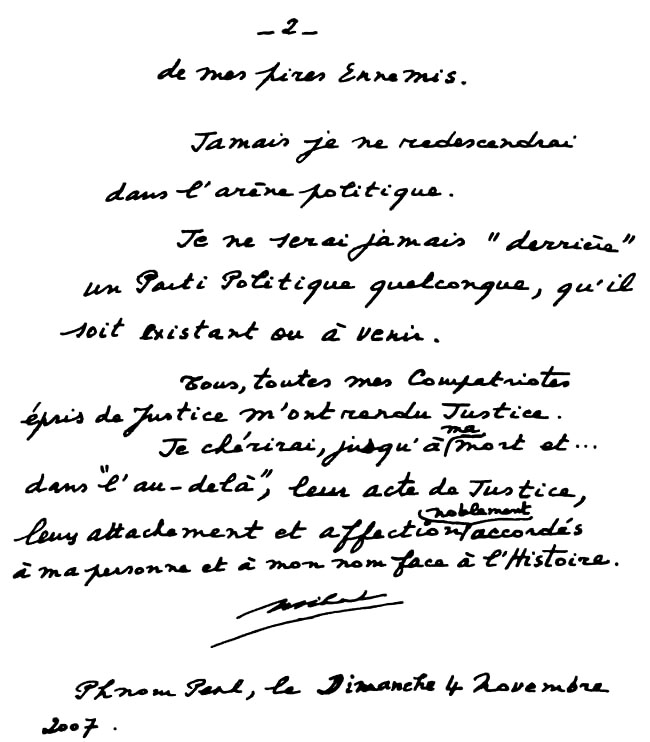 - 2 -
de mes pires Ennemis.
Jamais je ne redescendrai
dans l'arène politique.
Je ne serai jamais "derrière"
un Parti Politique quelconque, qu'il
soit existant ou à venir.
Tous, toutes mes Compatriotes
épris de Justice m'ont rendu Justice.
Je chérirai, jusqu'à ma mort et ...
dans "l'au-delà", leur acte de Justice,
leurs attachement et affection noblement accordés
à ma personne et à mon nom face à l'Histoire.
Phnom Penh, le Dimanche 4 Novembre
2007.